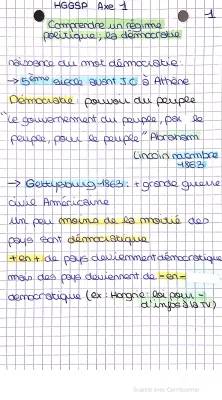 HGGSP Axe 1
1
Comprendre un régime
politique : la démocratie
naissance du mot démocratie.
→ 5ème siècle avant J.C à Athène
Démocratie : pouvoir du peuple
"Le gouvernement du peuple, par le
peuple, pour le peuple" Abraham
Lincoln novembre
1863
→ Gettysburg 1863 : + grande guerre
civile Américaine
Un peu moins de la moitié des
pays sont démocratique
+ en + de pays deviennent démocratique
mais des pays deviennent de - en -
démocratique (ex : Hongrie : loi pour -
d'infos à la TV)
Scanné avec CamScanner